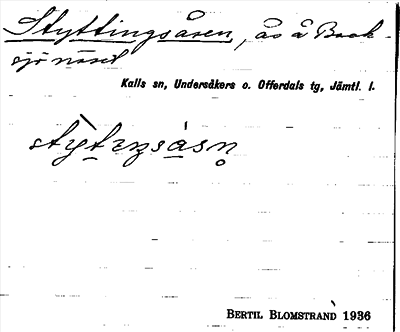 Styttingsåsen, ås å Book-
sjö näset
Kalls sn, Undersåkers o. Offerdals tg, Jämtl. l.
BERTIL BLOMSTRAND 1936